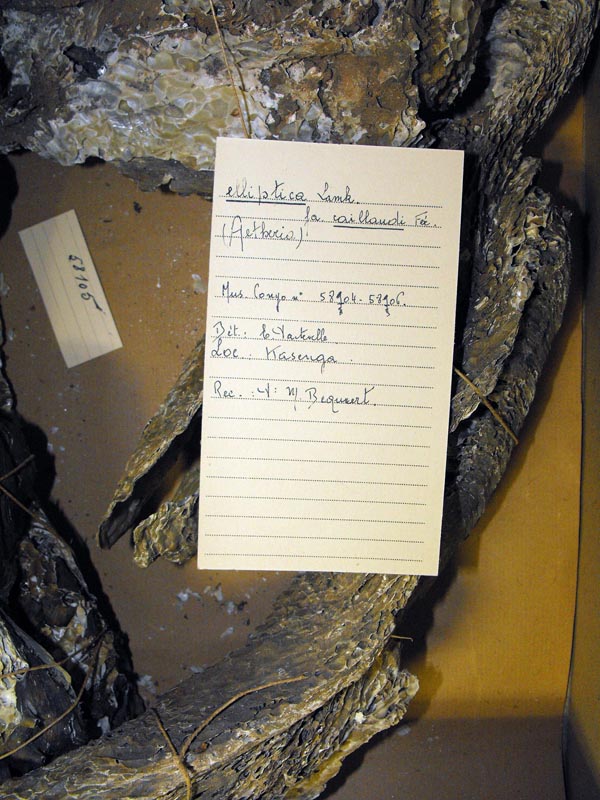 elliptica Lamk.
fa caillaudi Fér.
(Aetheria)
Mus. Congo n° 58104 - 58106.
Dét: E. Dartevelle
Loc: Kasenga.
Rec.: M. Bequaert.
58105